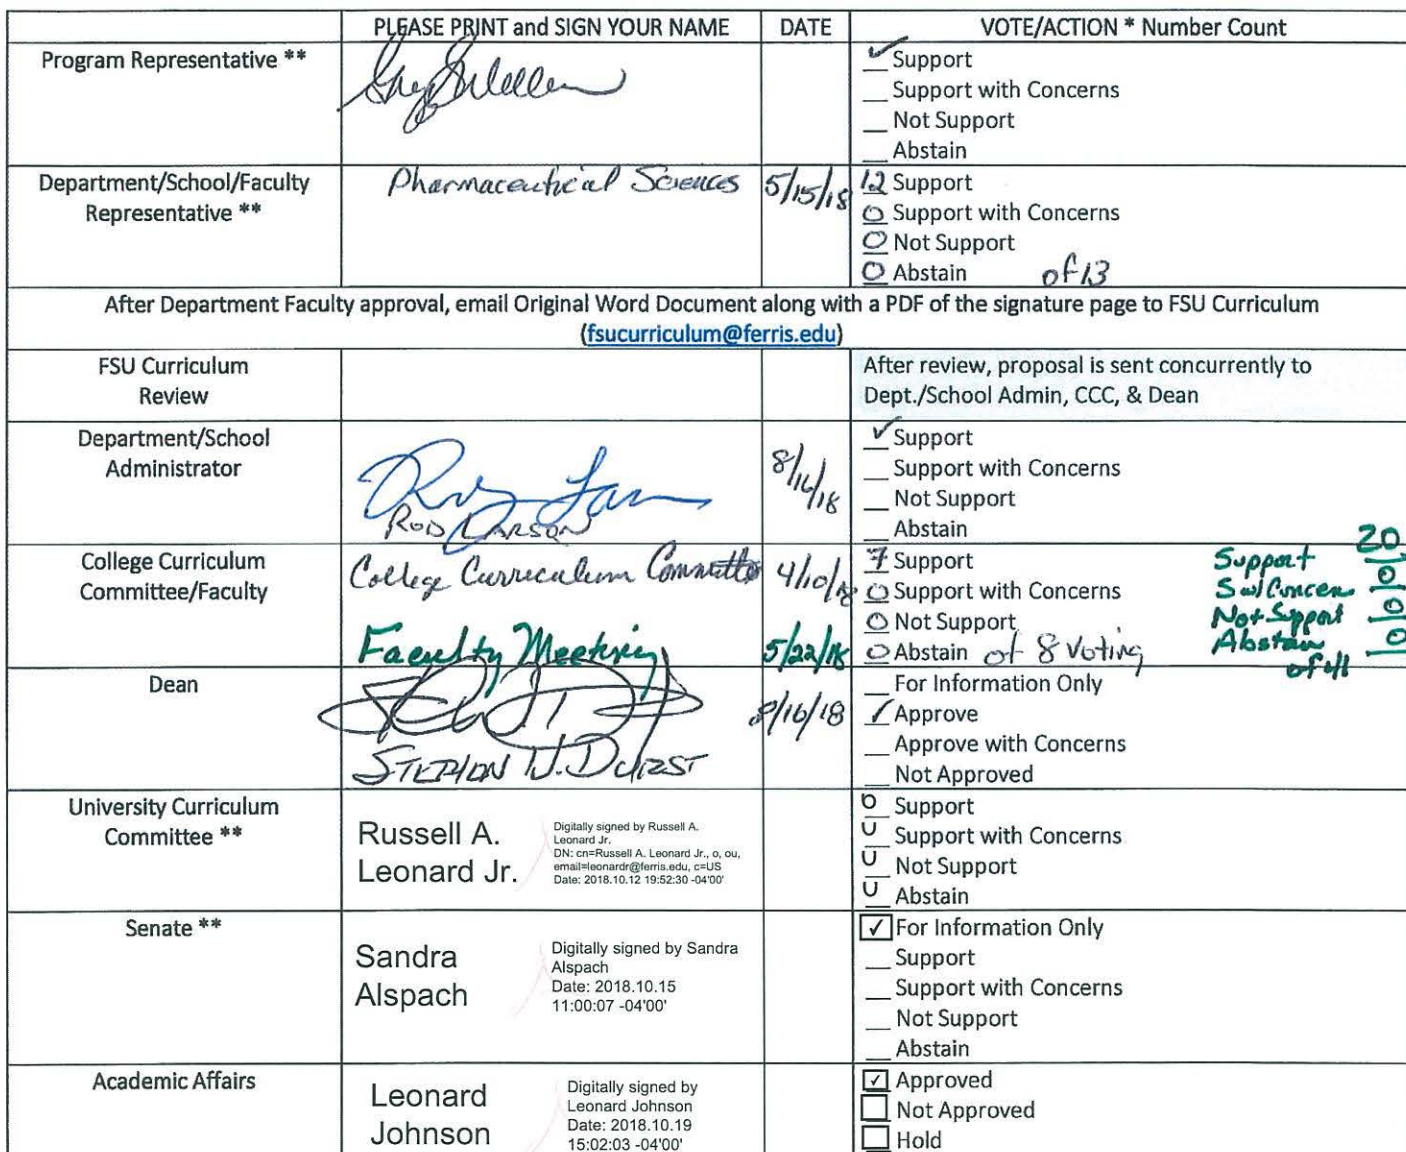 PLEASE PRINT and SIGN YOUR NAME DATE VOTE/ACTION * Number Count
Program Representative **
✓ Support
__ Support with Concerns
__ Not Support
__ Abstain
Department/School/Faculty
Representative **
Pharmaceutical Sciences 5/15/18
12 Support
0 Support with Concerns
0 Not Support
0 Abstain of 13
After Department Faculty approval, email Original Word Document along with a PDF of the signature page to FSU Curriculum
(fsucurriculum@ferris.edu)
FSU Curriculum
Review
After review, proposal is sent concurrently to
Dept./School Admin, CCC, & Dean
Department/School
Administrator
ROD LARSON
8/16/18
✓ Support
__ Support with Concerns
__ Not Support
__ Abstain
College Curriculum
Committee/Faculty
College Curriculum Committe 4/10/18
Faculty Meeting 5/22/18
7 Support
0 Support with Concerns
0 Not Support
0 Abstain of 8 Voting
Support 20
S w/ Concern 0
Not Support 0
Abstain 0
of 41
Dean
STEPHEN W. DURST
8/16/18
__ For Information Only
✓ Approve
__ Approve with Concerns
__ Not Approved
University Curriculum
Committee **
Russell A.
Leonard Jr.
Digitally signed by Russell A.
Leonard Jr.
DN: cn=Russell A. Leonard Jr., o, ou,
email=leonardr@ferris.edu, c=US
Date: 2018.10.12 19:52:30 -04'00'
Support
Support with Concerns
Not Support
Abstain
Senate **
Sandra
Alspach
Digitally signed by Sandra
Alspach
Date: 2018.10.15
11:00:07 -04'00'
✓ For Information Only
__ Support
__ Support with Concerns
__ Not Support
__ Abstain
Academic Affairs
Leonard
Johnson
Digitally signed by
Leonard Johnson
Date: 2018.10.19
15:02:03 -04'00'
✓ Approved
Not Approved
Hold